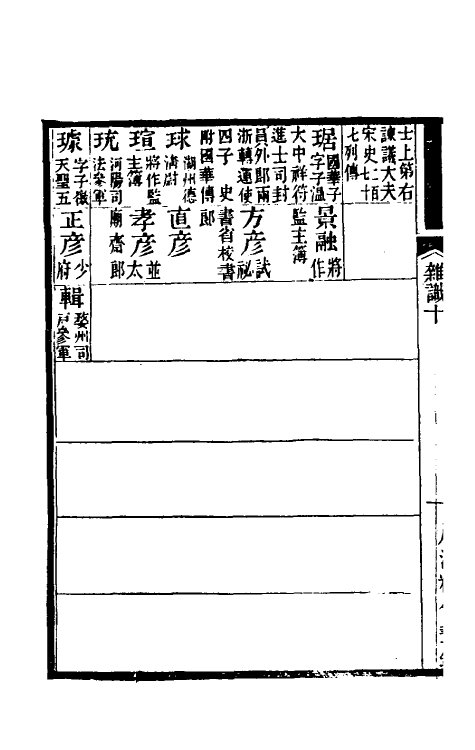 士上第右
諫議大夫
宋史二百
七十
七列傳
琚 國華子字子溫
大中祥符
進士司封
員外郎兩
浙轉運使
四子 史
附國華傳
球 湖州德清尉
瑄 將作監主簿
珫 河陽司法參軍
璩 字子徽天聖五
景融 將作
監主簿
方彦 試祕
書省校書
郎
直彦
孝彦 並太
廟齋郎
正彦 少府
輯 婺州司戶參軍
雜識十